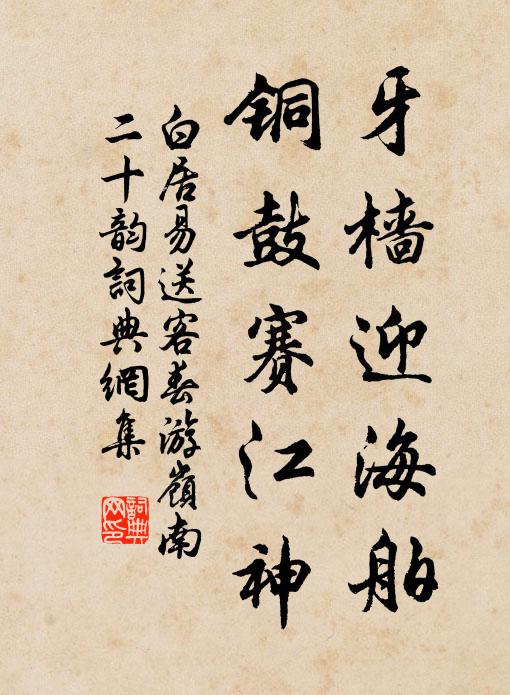 牙檣迎海舶
銅鼓賽江神
白居易送客春游嶺南
二十韵詞典網集
詞典网印